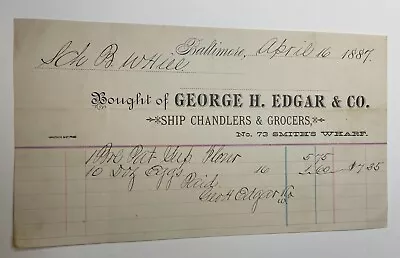 Baltimore, April 16 1887.
Sch B W Hill
Bought of GEORGE H. EDGAR & CO.
SHIP CHANDLERS & GROCERS,
No. 73 SMITH'S WHARF.
1 Bre Pat Flour 5.75
10 Doz Eggs 16 1.60 $7.35
Paid
Geo H Edgar & Co